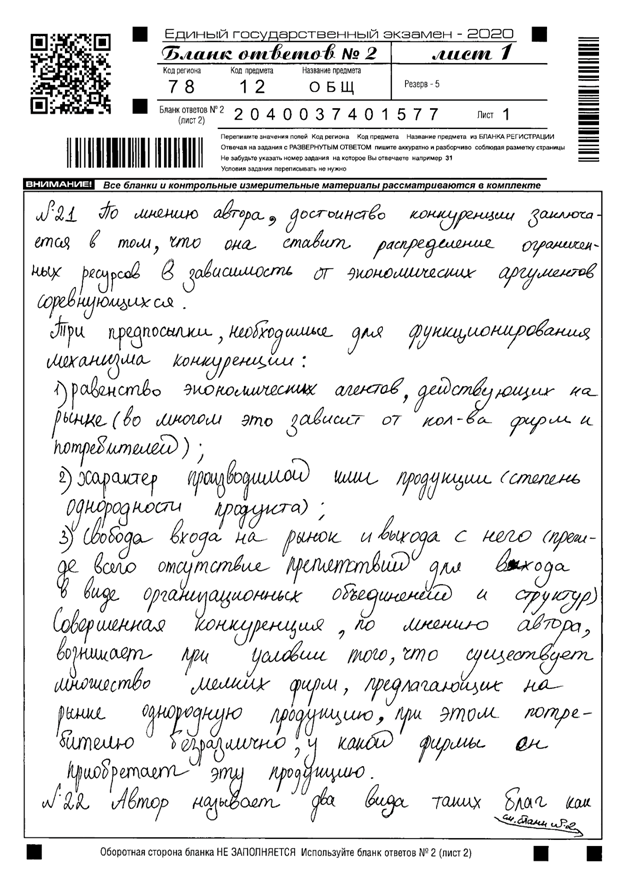 Единый государственный экзамен - 2020
Бланк ответов № 2 лист 1
Код региона Код предмета Название предмета
78 12 ОБЩ Резерв - 5
Бланк ответов № 2 (лист 2) 2040037401577 Лист 1
Перепишите значения полей Код региона Код предмета Название предмета из БЛАНКА РЕГИСТРАЦИИ
Отвечая на задания с РАЗВЕРНУТЫМ ОТВЕТОМ пишите аккуратно и разборчиво соблюдая разметку страницы
Не забудьте указать номер задания на которое Вы отвечаете например 31
Условия задания переписывать не нужно
ВНИМАНИЕ! Все бланки и контрольные измерительные материалы рассматриваются в комплекте
№21 По мнению автора, достоинство конкуренции заключа-
ется в том, что она ставит распределение ограничен-
ных ресурсов в зависимость от экономических аргументов
соревнующихся.
Три предпосылки, необходимые для функционирования
механизма конкуренции:
1) равенство экономических агентов, действующих на
рынке (во многом это зависит от кол-ва фирм и
потребителей);
2) характер производимой ими продукции (степень
однородности продукта);
3) свобода входа на рынок и выхода с него (преж-
де всего отсутствие препятствий для входа
в виде организационных объединений и структур)
Совершенная конкуренция, по мнению автора,
возникает при условии того, что существует
множество мелких фирм, предлагающих на
рынке однородную продукцию, при этом потре-
бителю безразлично, у какой фирмы он
приобретает эту продукцию.
№22 Автор называет два вида таких благ как
см. бланк №2
Оборотная сторона бланка НЕ ЗАПОЛНЯЕТСЯ Используйте бланк ответов № 2 (лист 2)